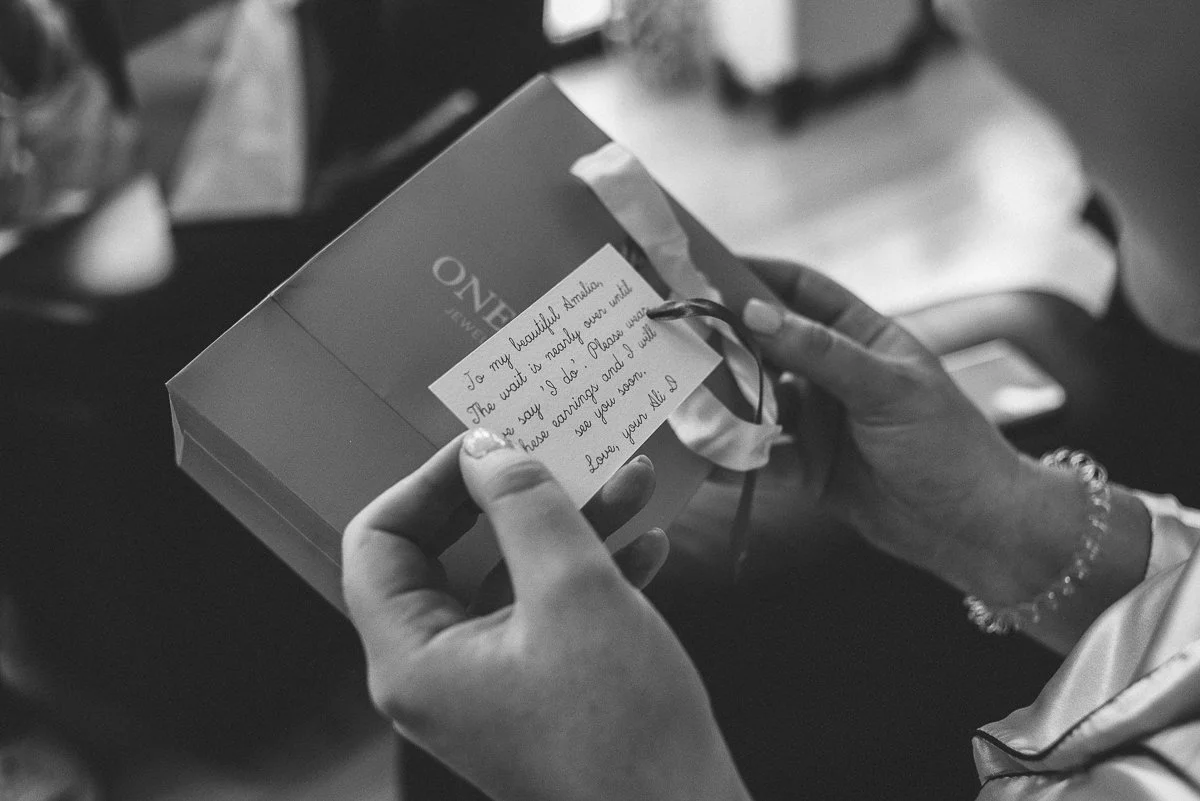 ONE
JEWE
To my beautiful Amelia,
The wait is nearly over until
we say 'I do'. Please wear
these earrings and I will
see you soon.
Love, your Ali D